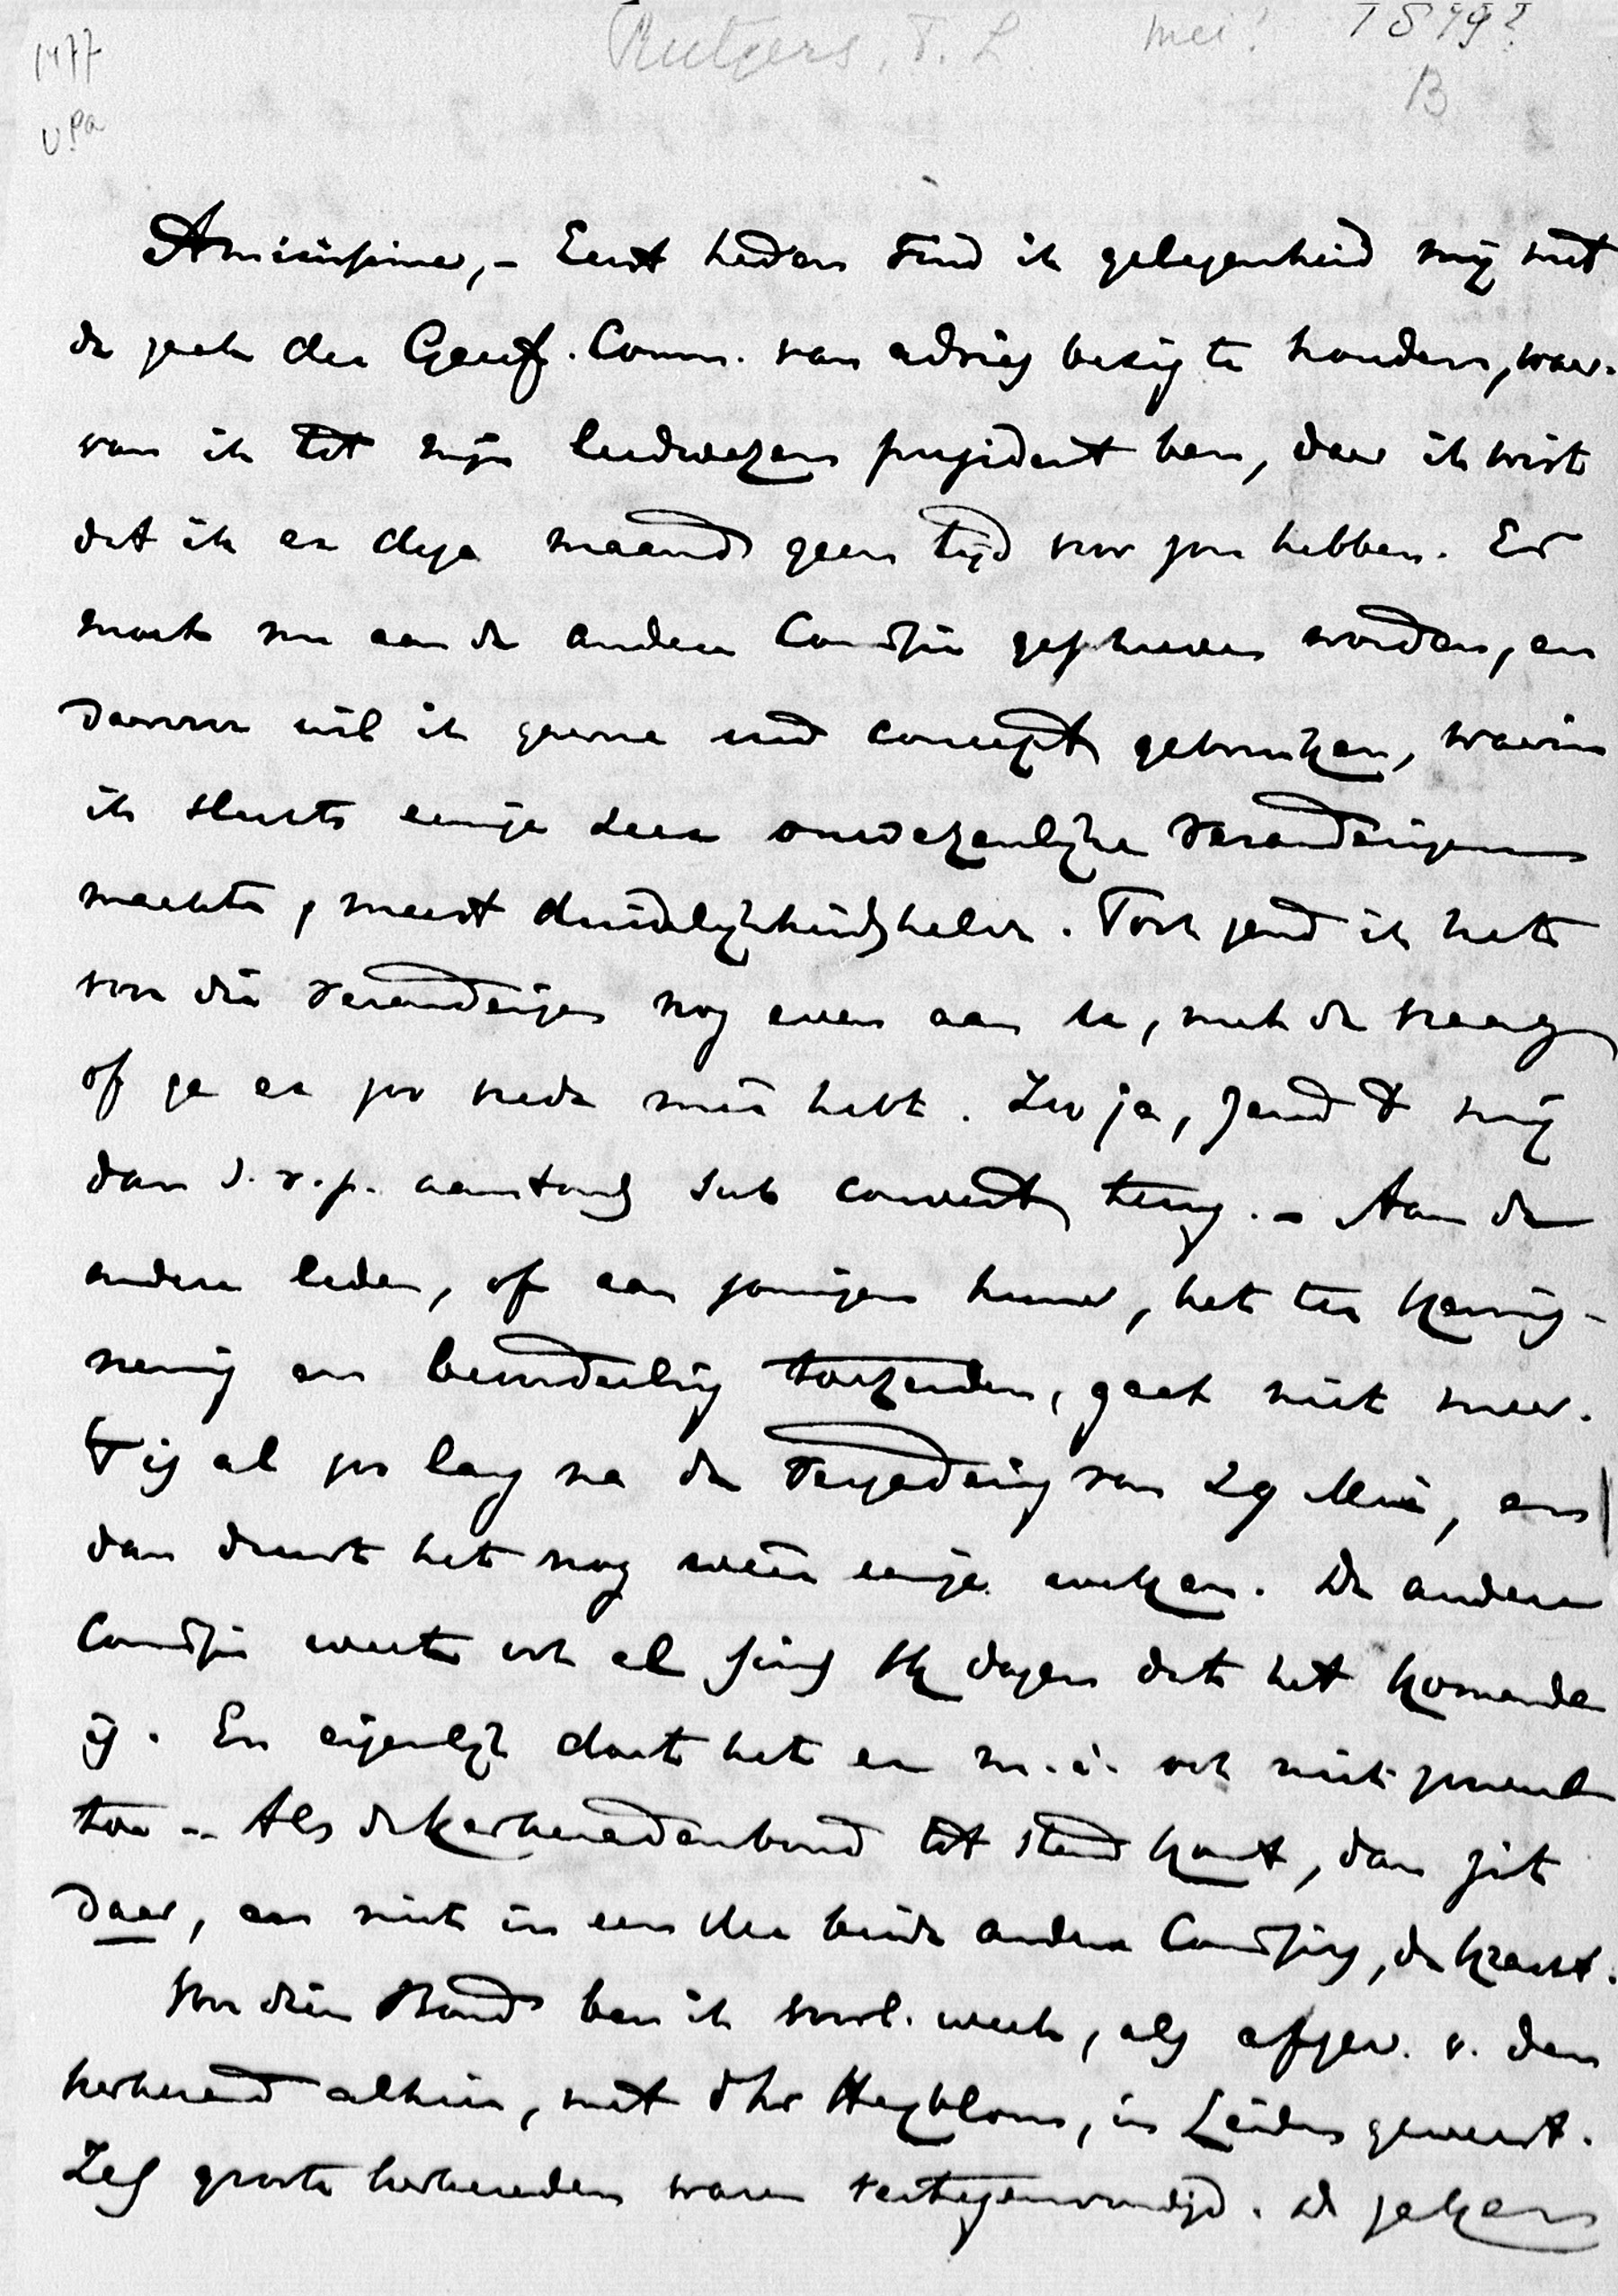 1477
Rutgers, F. L. mei? 1879?
B
Amicissime, - Eerst heden vind ik gelegenheid mij met
de zaak der Geref. Comm. van advies bezig te houden, waar-
van ik tot mijn leedwezen president ben, daar ik wist
dat ik er deze maand geen tijd voor zou hebben. Er
moet nu aan de andere Commissie geschreven worden, en
daarvoor wil ik gaarne uw concept gebruiken, waarin
ik slechts eenige zeer onwezenlijke veranderingen
maakte, meest duidelijkheidshalve. Toch zend ik het
voor die veranderingen nog even aan u, met de vraag
of ge er zoo vrede meê hebt. Zoo ja, zend 't mij
dan s.v.p. aanstonds sub couvert terug. - Aan de
andere leden, of aan sommigen hunner, het ter kennis-
neming en beoordeeling toezenden, gaat niet meer.
't is al zoo lang na de vergadering van 29 Mei, en
dan duurt het nog weêr eenige weken. De andere
Commissie weet ook al sinds dagen dat het komende
is. En eigenlijk doet het er m.i. ook niet zooveel
toe - Als de kerkeradenbond tot stand komt, dan zit
daar, en niet in een der beide andere Commissies, de kracht.
Voor dien Bond ben ik voorl. week, als afgev. v. den
kerkeraad alhier, met dhr Heyblom, in Leiden geweest.
Zes groote kerkeraden waren vertegenwoordigd. De zaken